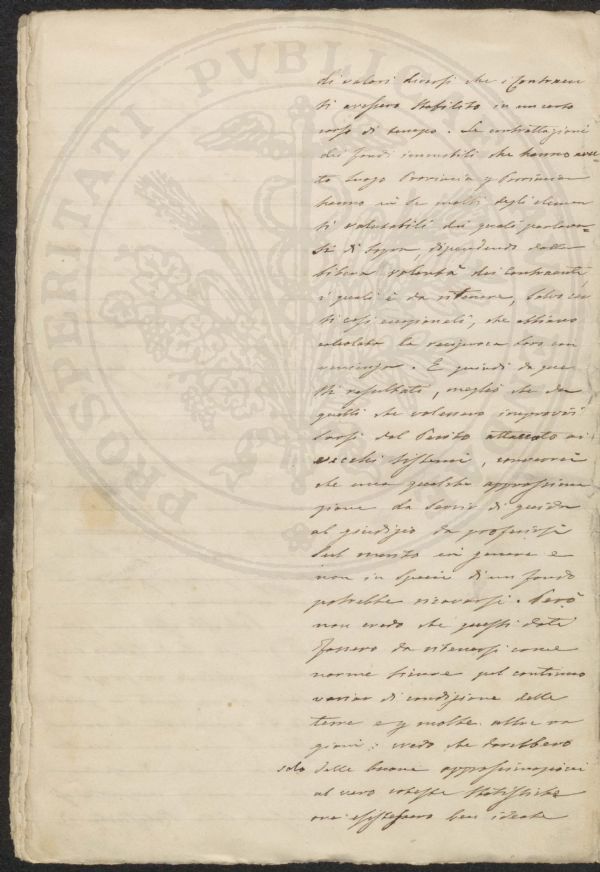 PROSPERITATI PVBLICAE
di valori diversi che i Contraen
ti avessero stabilito in un certo
corso di tempo. Le contrattazioni
dei fondi immobili che hanno avu-
to luogo Provincia p Provincia
hanno in se molti degli elemen
ti valutabili dei quali parlava-
si di sopra, dipendendo dalla
libera volontà dei contraenti,
i quali è da ritenere, salvo cer
ti casi eccezionali, che abbiano
calcolato la reciproca loro con
venienza. E quindi da que
sti resultati, meglio che da
quelli che volessero improvvi
sarsi dal Perito attaccato ai
vecchi sistemi, converrà
che una qualche approssima
zione da servir di guida
al giudizio da proferirsi
sul merito in genere e
non in specie di un fondo
potrebbe ricavarsi. Però
non credo che questi dati
fossero da ritenersi come
norme sicure pel continuo
variar di condizione delle
terre e p molte altre ra
gioni: credo che darebbero
solo delle buone approssimazioni
al vero coteste statistiche
ove esistessero ben ideate